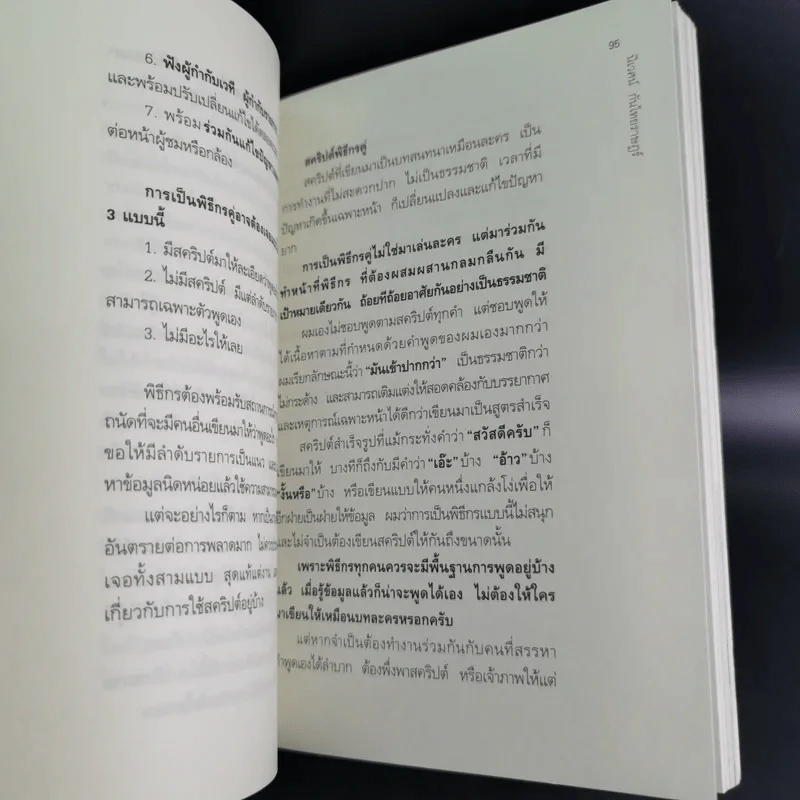 6. ฟังผู้กำกับเวที ผู้กำกับรายการ
และพร้อมปรับเปลี่ยนแก้ไขได้
7. พร้อมร่วมกันแก้ไขปัญหา
ต่อหน้าผู้ชมหรือกล้อง
การเป็นพิธีกรคู่อาจต้องเจอ
3 แบบนี้
1. มีสคริปต์มาให้ละเอียดว่า
2. ไม่มีสคริปต์ มีแต่ลำดับราย
สามารถเฉพาะตัวพูดเอง
3. ไม่มีอะไรให้เลย
พิธีกรต้องพร้อมรับสถานการณ์
ถนัดที่จะมีคนอื่นเขียนมาให้ว่าพูดอะไร
ขอให้มีลำดับรายการเป็นแนว และ
หาข้อมูลนิดหน่อยแล้วใช้ความสามารถ
แต่จะอย่างไรก็ตาม หาก
อันตรายต่อการพลาดมาก ไม่ควร
เจอทั้งสามแบบ สุดแท้แต่งาน
เกี่ยวกับการใช้สคริปต์อยู่บ้าง
95
นิเวศน์ กันไทยราษฎร์
สคริปต์พิธีกรคู่
สคริปต์ที่เขียนมาเป็นบทสนทนาเหมือนละคร เป็น
การทำงานที่ไม่สะดวกปาก ไม่เป็นธรรมชาติ เวลาที่มี
ปัญหาเกิดขึ้นเฉพาะหน้า ก็เปลี่ยนแปลงและแก้ไขปัญหา
ยาก
การเป็นพิธีกรคู่ไม่ใช่มาเล่นละคร แต่มาร่วมกัน
ทำหน้าที่พิธีกร ที่ต้องผสมผสานกลมกลืนกัน มี
เป้าหมายเดียวกัน ถ้อยทีถ้อยอาศัยกันอย่างเป็นธรรมชาติ
ผมเองไม่ชอบพูดตามสคริปต์ทุกคำ แต่ชอบพูดให้
ได้เนื้อหาตามที่กำหนดด้วยคำพูดของผมเองมากกว่า
ผมเรียกลักษณะนี้ว่า “มันเข้าปากกว่า” เป็นธรรมชาติกว่า
ไม่กระด้าง และสามารถเติมแต่งให้สอดคล้องกับบรรยากาศ
และเหตุการณ์เฉพาะหน้าได้ดีกว่าเขียนมาเป็นสูตรสำเร็จ
สคริปต์สำเร็จรูปที่แม้กระทั่งคำว่า “สวัสดีครับ” ก็
เขียนมาให้ บางทีก็ถึงกับมีคำว่า “เอ๊ะ” บ้าง “อ้าว” บ้าง
“งั้นหรือ” บ้าง หรือเขียนแบบให้คนหนึ่งแกล้งโง่เพื่อให้
อีกฝ่ายเป็นฝ่ายให้ข้อมูล ผมว่าการเป็นพิธีกรแบบนี้ไม่สนุก
และไม่จำเป็นต้องเขียนสคริปต์ให้กันถึงขนาดนั้น
เพราะพิธีกรทุกคนควรจะมีพื้นฐานการพูดอยู่บ้าง
แล้ว เมื่อรู้ข้อมูลแล้วก็น่าจะพูดได้เอง ไม่ต้องให้ใคร
มาเขียนให้เหมือนบทละครหรอกครับ
แต่หากจำเป็นต้องทำงานร่วมกันกับคนที่สรรหา
คำพูดเองได้ลำบาก ต้องพึ่งพาสคริปต์ หรือเจ้าภาพให้แต่